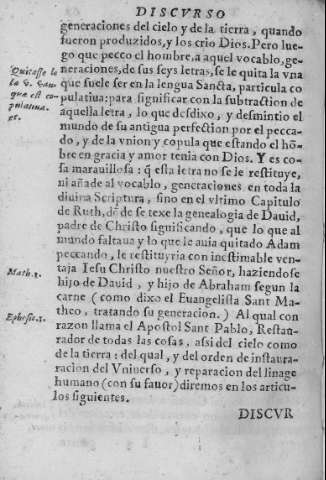 DISCVRSO
generaciones del cielo y de la tierra, quando
fueron produzidos, y los crio Dios. Pero lue-
go que pecco el hombre, a aquel vocablo, ge-
neraciones, de sus seys letras, se le quita la vna
que suele ser en la lengua Sancta, particula co
pulatiua: para significar con la subtraction de
aquella letra, lo que desdixo, y desmintio el
mundo de su antigua perfection por el pecca-
do, y de la vnion y copula que estando el hõ-
bre en gracia y amor tenia con Dios. Y es co-
sa marauillosa: q̃ esta letra no se le restituye,
ni añade al vocablo, generaciones, en toda la
diuina Scriptura, sino en el vltimo Capitulo
de Ruth, dõde se texe la genealogia de Dauid,
padre de Christo significando, que lo que al
mundo faltaua y lo que le auia quitado Adam
peccando, le restituyria con inestimable ven-
taja Iesu Christo nuestro Señor, haziendose
hijo de Dauid, y hijo de Abraham segun la
carne (como dixo el Euangelista Sant Ma-
theo, tratando su generacion.) Al qual con
razon llama el Apostol Sant Pablo, Restau-
rador de todas las cosas, assi del cielo como
de la tierra: del qual, y del orden de instaura-
racion del Vniuerso, y reparacion del linage
humano (con su fauor) diremos en los articu-
los siguientes.
DISCVR
Quitasse le
la
quæ est co-
pulatiua.
et.
Math.1.
Ephesi.1.